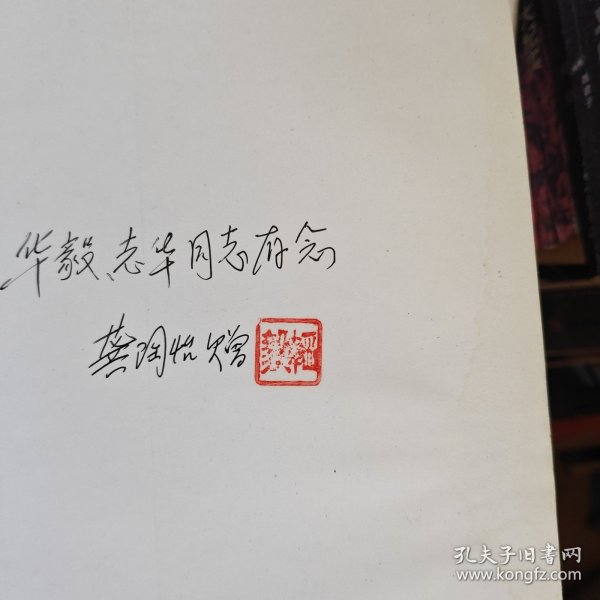 华毅、志华同志存念
龚陶怡赠
孔夫子旧书网
www.kongfz.com